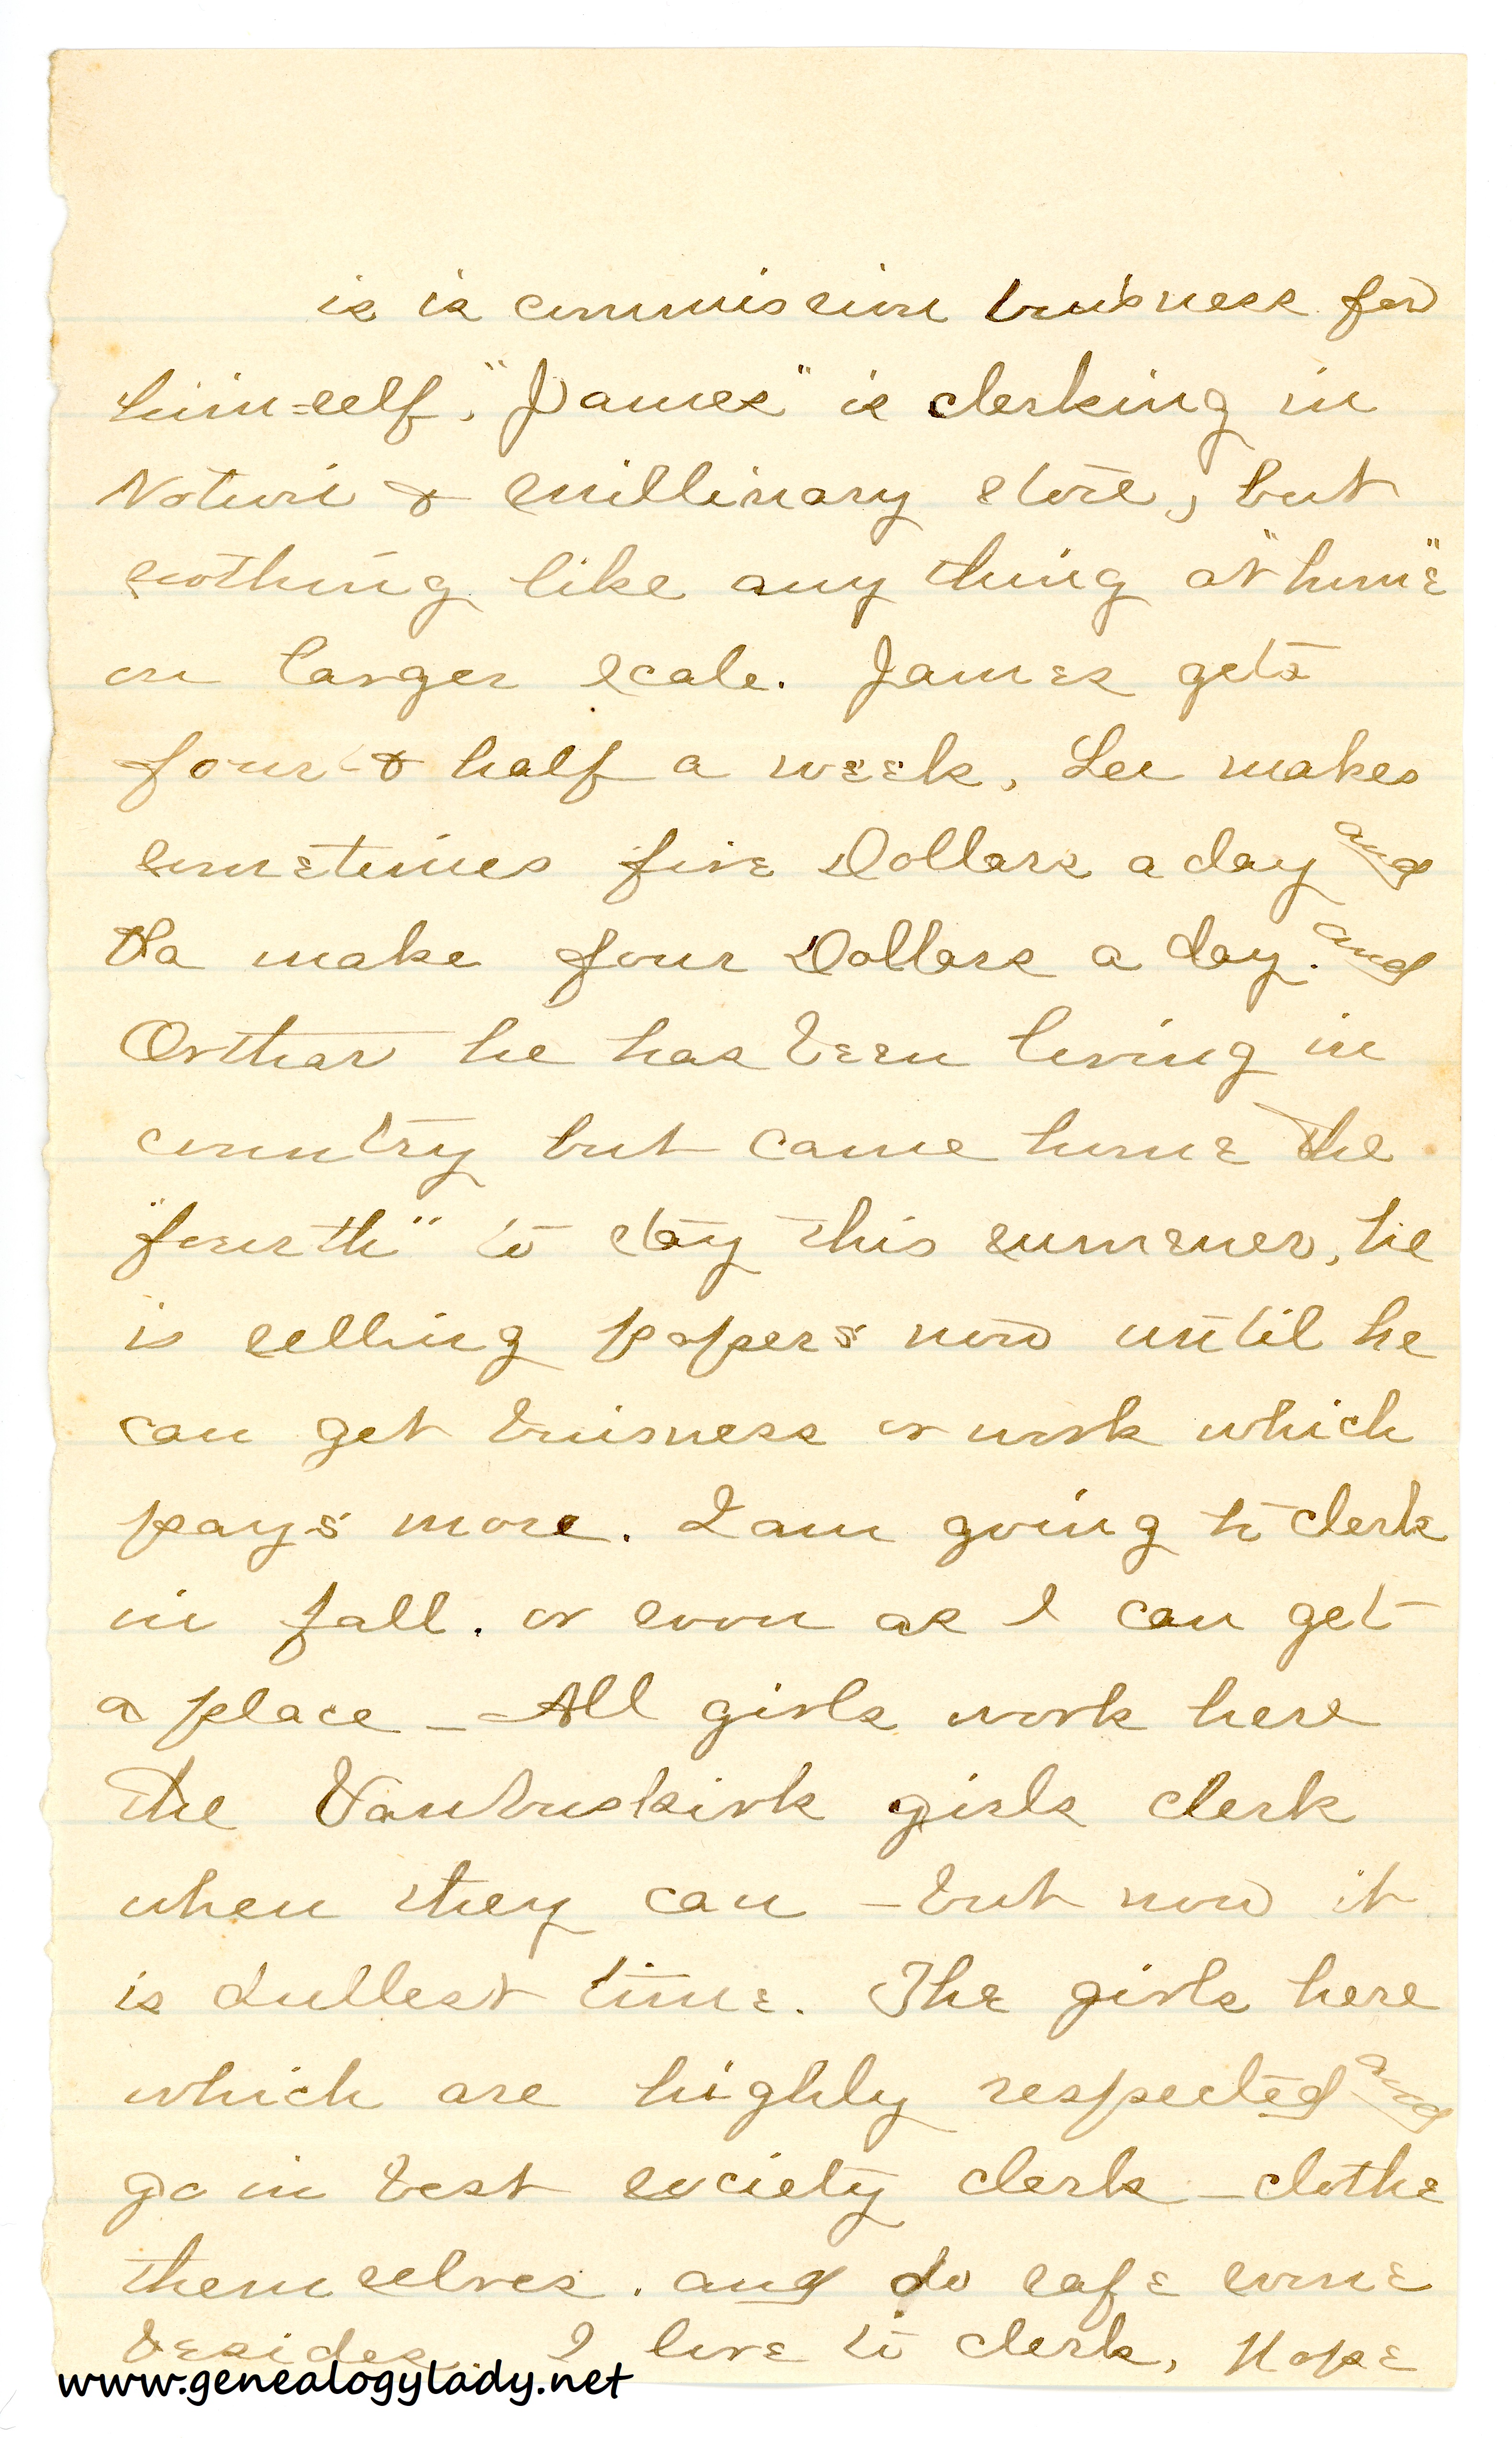 is is commission buisness for
him=self. "James" is clerking in
Notion & millinary store, but
nothing like any thing at "home"
on larger scale. James gets
four & half a week, Lee makes
sometimes five Dollars a day and
Pa make four Dollars a day. and
Orthar he has been living in
country but came home the
"fourth" to stay this summer, he
is selling papers now until he
can get buisness or work which
pays more. I am going to clerk
in fall. or soon as I can get
a place - All girls work here
the Vanbuskirk girls clerk
when they can - but now it
is dullest time. The girls here
which are highly respected and
go in best society clerk - clothe
themselves. and do safe some
besides. I love to clerk, Hope
www.genealogylady.net